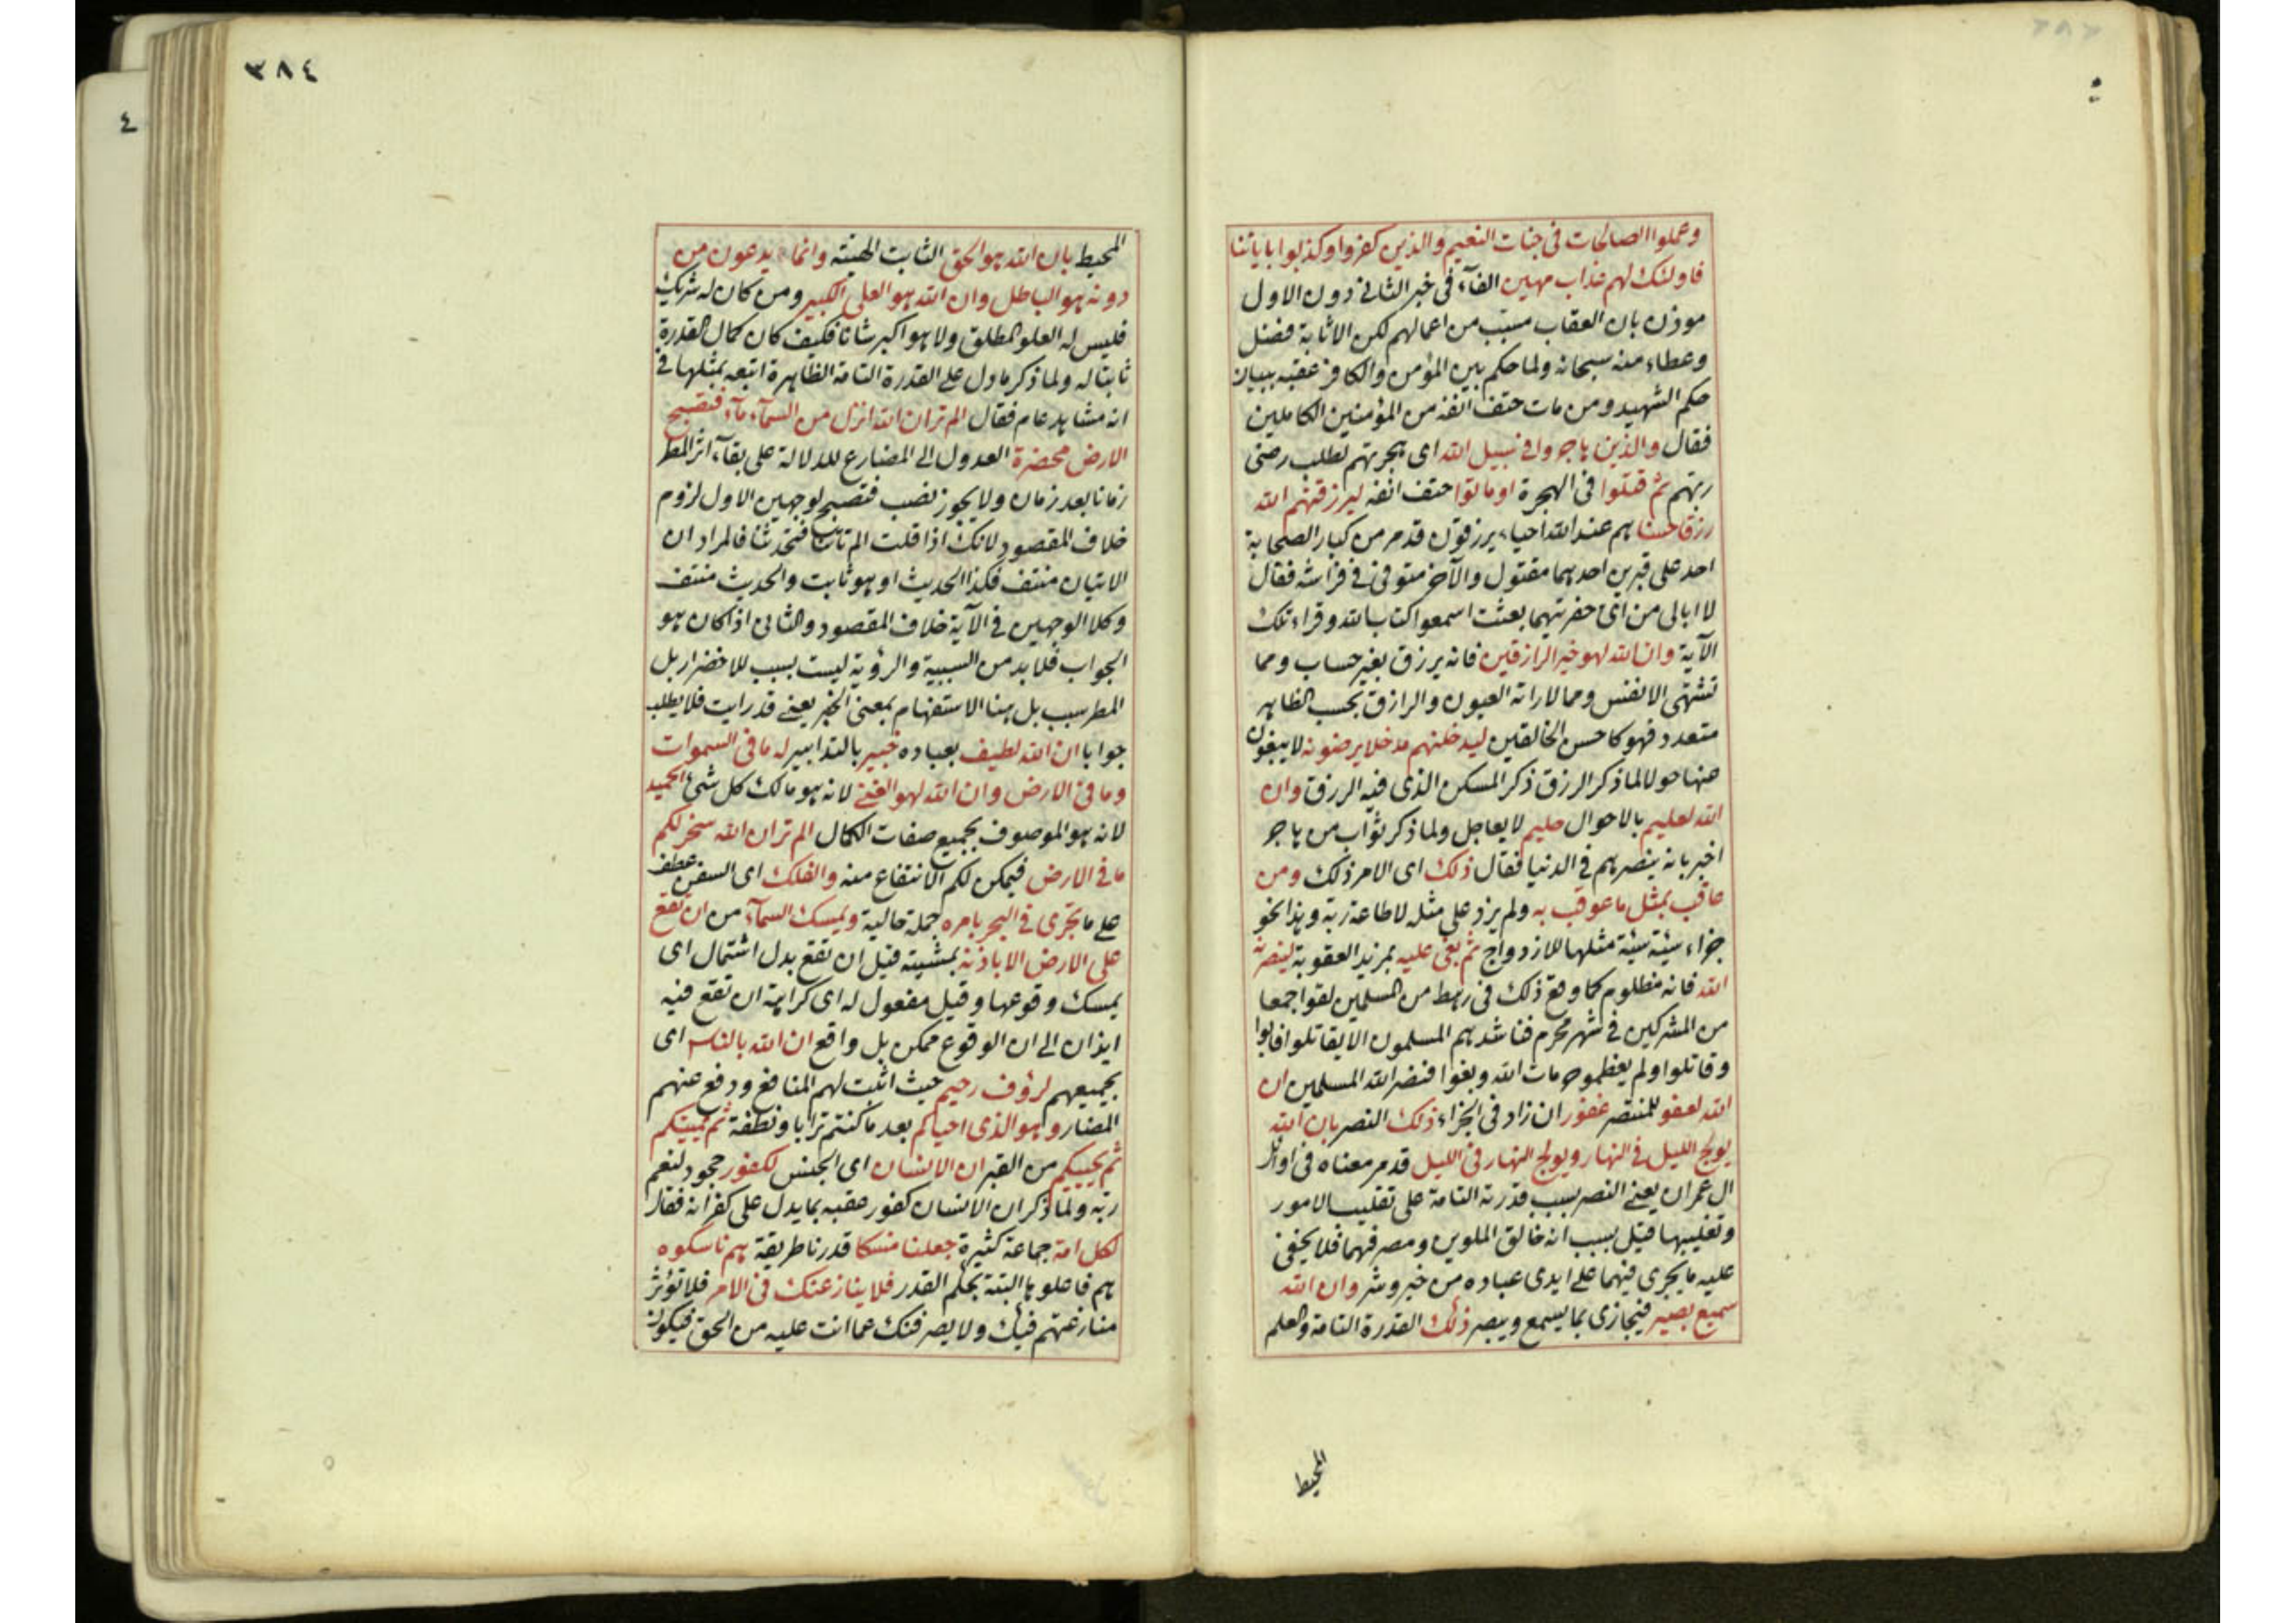 وعملوا الصالحات فى جنات النعيم والذين كفروا وكذبوا باياتنا
فاولئك لهم عذاب مهين الفآء فى خبر الثانى دون الاول
موذن بان العقاب مسبب من اعمالهم لكن الاثابة فضل
وعطاء منه سبحانه ولما حكم بين المؤمن والكافر عقبه ببيان
حكم الشهيد ومن مات حتف انفه من المؤمنين الكاملين
فقال والذين هاجروا فى سبيل الله اى هجرتهم لطلب رضى
ربهم ثم قتلوا فى الهجرة او ماتوا حتف انفه ليرزقنهم الله
رزقا حسنا هم عند الله احياء يرزقون قدمر من كبار الصحابة
احد على قبرين احدهما مقتول والآخر متوفى فى فراشه فقال
لا ابالى من اى حفرتيهما بعثت اسمعوا كتاب الله وقراء تلك
الآية وان الله لهو خير الرازقين فانه يرزق بغير حساب ومما
تشتهى الانفس ومما لا راته العيون والرازق بحسب الظاهر
متعدد فهو كاحسن الخالقين ليدخلنهم مدخلا يرضونه لا يبغون
عنها حولا لما ذكر الرزق ذكر المسكن الذى فيه الرزق وان
الله لعليم بالاحوال حليم لا يعاجل ولما ذكر ثواب من هاجر
اخبر بانه ينصرهم فى الدنيا فقال ذلك اى الامر ذلك ومن
عاقب بمثل ما عوقب به ولم يزد على مثله لاطاعة ربه وهذا نحو
جزاء سيئة سيئة مثلها للازدواج ثم بغى عليه بمزيد العقوبة لينصرنه
الله فانه مظلوم كما وقع ذلك فى رهط من المسلمين لقوا جمعا
من المشركين فى شهر محرم فناشدهم المسلمون الا يقاتلوا فابوا
وقاتلوا ولم يعظموا حرمات الله وبغوا فنصر الله المسلمين ان
الله لعفو للمنتصر غفور ان زاد فى الجزاء ذلك النصر بان الله
يولج الليل فى النهار ويولج النهار فى الليل قدمر معناه فى اوائل
ال عمران يعنى النصر بسبب قدرته التامة على تقليب الامور
وتغليبها قيل بسبب انه خالق الملوين ومصرفهما فلا يخفى
عليه ما يجرى فيهما على ايدى عباده من خير وشر وان الله
سميع بصير فيجازى بما يسمع ويبصر ذلك القدرة التامة والعلم
المحيط
٣٨٤
المحيط بان الله هو الحق الثابت الهيته وانما يدعون من
دونه هو الباطل وان الله هو العلى الكبير ومن كان له شريك
فليس له العلو المطلق ولا هو اكبر شانا فكيف كان كمال القدرة
ثابتا له ولما ذكر ما دل على القدرة التامة الظاهرة اتبعه بمثلها فى
انه مشاهد عام فقال الم تر ان الله انزل من السمآء مآء فتصبح
الارض مخضرة العدول الى المضارع للدلالة على بقآء اثر المطر
زمانا بعد زمان ولا يجوز نصب فتصبح لوجهين الاول لزوم
خلاف المقصود لانك اذا قلت الم تاتنا فتحدثنا فالمراد ان
الاتيان منتف فكذا الحديث او هو ثابت والحديث منتف
وكلا الوجهين فى الآية خلاف المقصود والثانى اذا كان هو
الجواب فلا بد من السببية والرؤية ليست بسبب للاخضرار بل
المطر سبب بل هنا الاستفهام بمعنى الخبر يعنى قد رايت فلا يطلب
جوابا ان الله لطيف بعباده خبير بالتدابير له ما فى السموات
وما فى الارض وان الله لهو الغنى لانه هو مالك كل شئ الحميد
لانه هو الموصوف بجميع صفات الكمال الم تر ان الله سخر لكم
ما فى الارض فيمكن لكم الانتفاع منه والفلك اى السفن عطف
على ما تجرى فى البحر بامره جملة حالية ويمسك السمآء من ان تقع
على الارض الا باذنه بمشيته قيل ان تقع بدل اشتمال اى
يمسك وقوعها وقيل مفعول له اى كراهة ان تقع فيه
ايذان الى ان الوقوع ممكن بل واقع ان الله بالناس اى
بجميعهم لرؤف رحيم حيث اثبت لهم المنافع ودفع عنهم
المضار وهو الذى احياكم بعد ما كنتم ترابا ونطفة ثم يميتكم
ثم يحييكم من القبر ان الانسان اى الجنس لكفور جحود لنعم
ربه ولما ذكر ان الانسان كفور عقبه بما يدل على كفرانه فقال
لكل امة جماعة كثيرة جعلنا منسكا قدرنا طريقة هم ناسكوه
هم فاعلوها البتة بحكم القدر فلا ينازعنك فى الامر فلا تؤثر
منازعتهم فيك ولا يصرفنك عما انت عليه من الحق فيكون